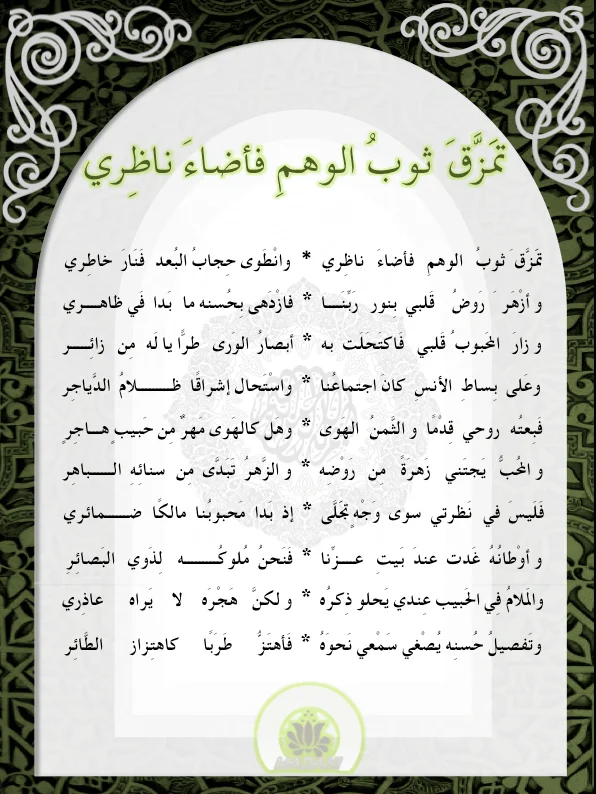 تمَزَّقَ ثوبُ الوهمِ فأضاءَ ناظِري
تمَزَّقَ ثوبُ الوهمِ فأضاءَ ناظِري * وانْطَوى حِجابُ البُعد فَنَارَ خاطِري
و أزْهَرَ رَوضُ قَلبي بِنور رَبِّنَـــا * فازْدَهى بحُسنه ما بَدا فَي ظاهـــري
و زارَ المَحبوبُ قَلبي فَاكتَحَلَت به * أبصارُ الوَرى طرًّا يا لَه مِن زائِـــر
وعَلى بِساطِ الأنسِ كانَ اجتماعُنا * واسْتَحال إشراقًا ظـــــلامُ الدَّياجِر
فَبِعتُه روحي قِدْمًا و الثَّمنُ الهَوى * وهل كالهَوى مَهرٌ من حَبيبٍ هـاجرٍ
و المُحبُّ يَجتَني زَهرَةً مِن رَوْضِه * و الزَّهرُ تَبَدَّى مِن سنائِهِ الـــباهِر
فَلَيسَ في نَظرتي سوى وَجْهٍ تجَلَّى * إذ بَدا مَحبوبُنا مالكًا ضـــمائري
و أوْطانُهُ غَدت عندَ بَيتِ عـــزِّنا * فَنَحنُ مُلوكُـــــه لِذَوي البَصائِرِ
والمَلامُ فِي الحَبيب عِندي يَحلو ذِكرُه * و لكنَّ هَجْرَه لا يَراه عاذِري
وتَفصيلُ حُسنِه يُصْغي سَمْعي نَحوَهُ * فَأهتَزُّ طَرَبًا كاهتِزاز الطَّائِر